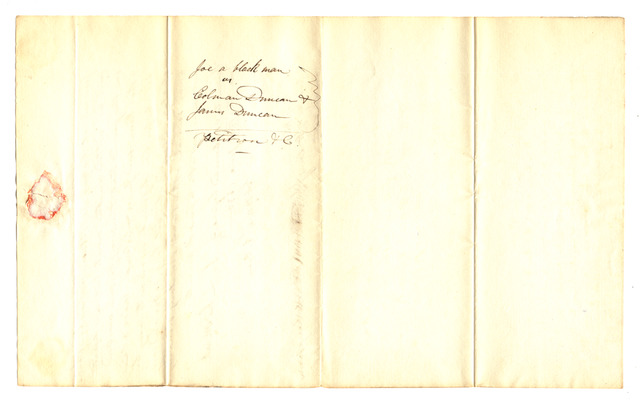 Joe a black man
vs.
Colman Duncan &
James Duncan
Petition & C